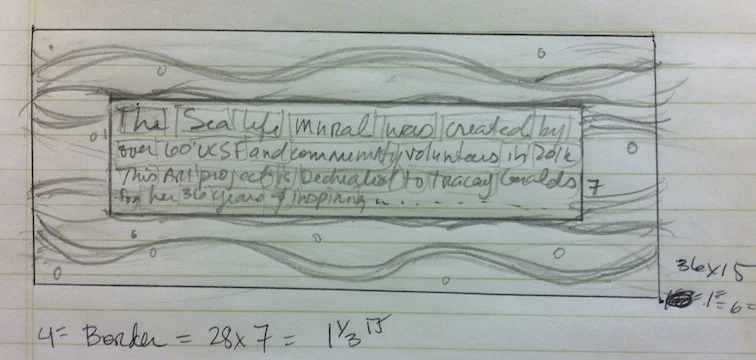 The Sea life mural was created by
over 100 UCSF and community volunteers in 2012
This Art project is Dedicated to Tracey Geralds
for her 36 years of inspiring
7
36x15
= 1 = 6 =
4= Border = 28x7 = 1 1/3